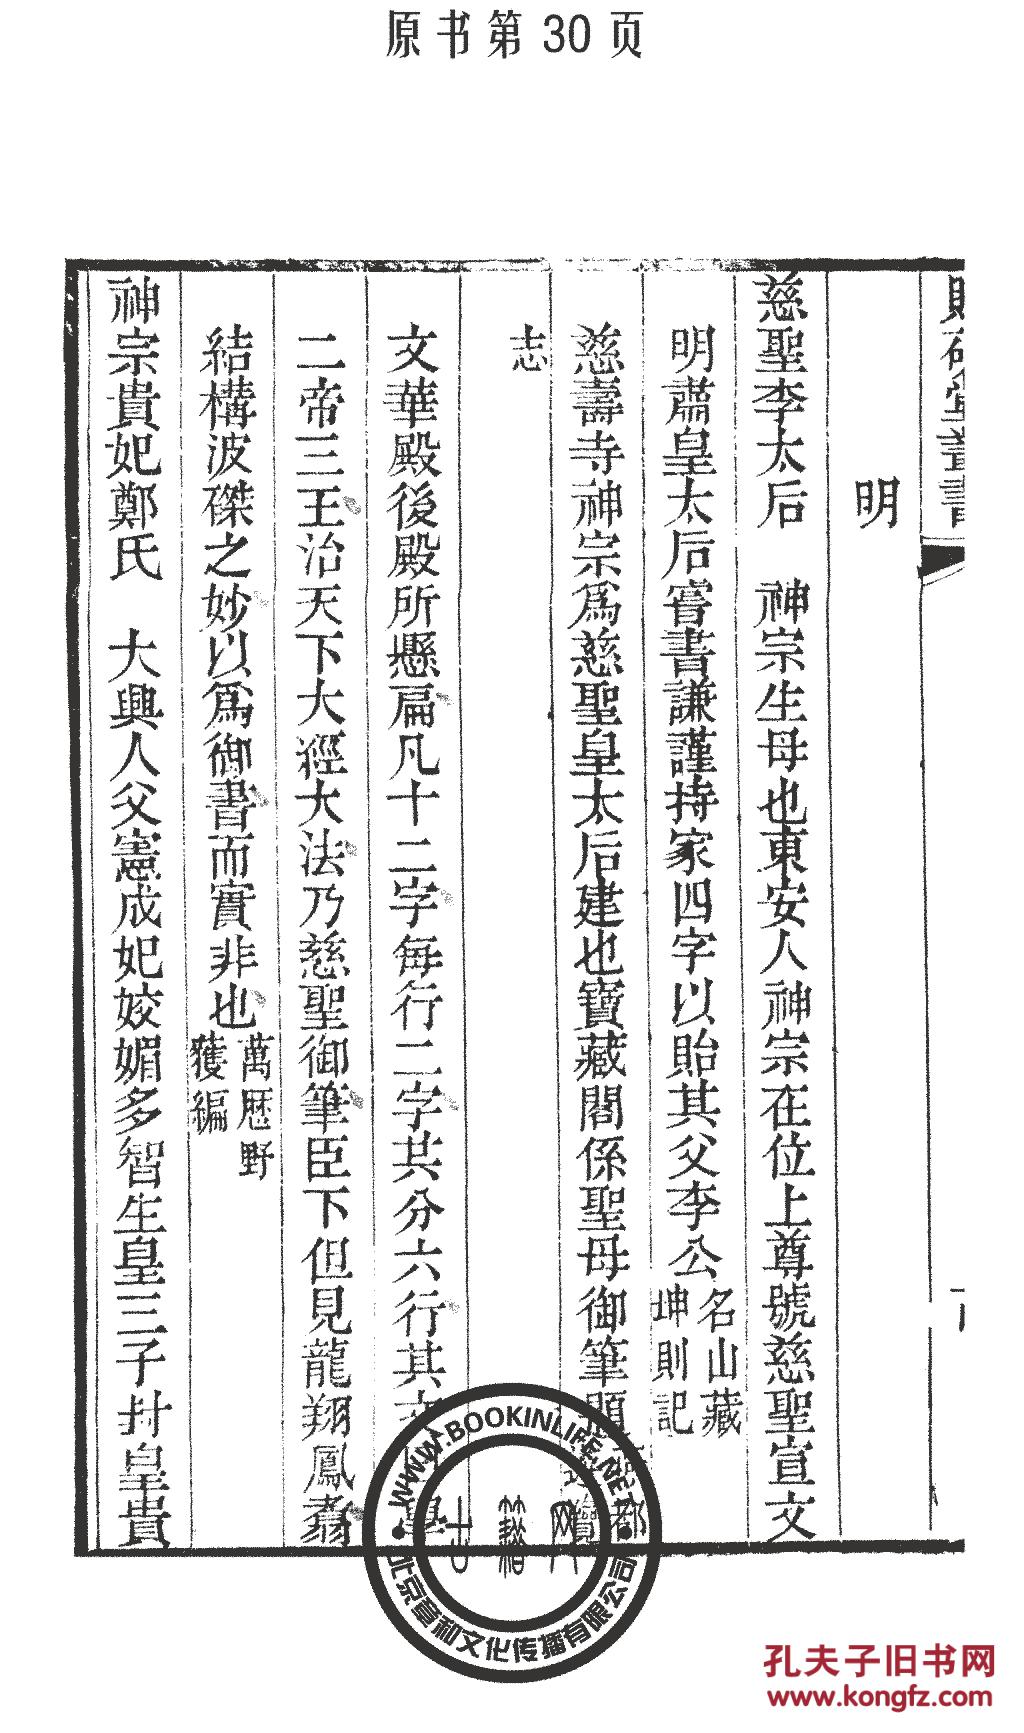 原书第30页
明
慈聖李太后　神宗生母也東安人神宗在位上尊號慈聖宣文
明肅皇太后嘗書謙謹持家四字以貽其父李公名山藏坤則記
慈壽寺神宗爲慈聖皇太后建也寶藏閣係聖母御筆題
志
文華殿後殿所懸扁凡十二字每行二字共分六行其文曰學
二帝三王治天下大經大法乃慈聖御筆臣下但見龍翔鳳翥
結構波磔之妙以爲御書而實非也萬歷野獲編
神宗貴妃鄭氏　大興人父憲成妃姣媚多智生皇三子封皇貴
WWW.BOOKINLIFE.NET
北京章和文化传播有限公司
孔夫子旧书网
www.kongfz.com